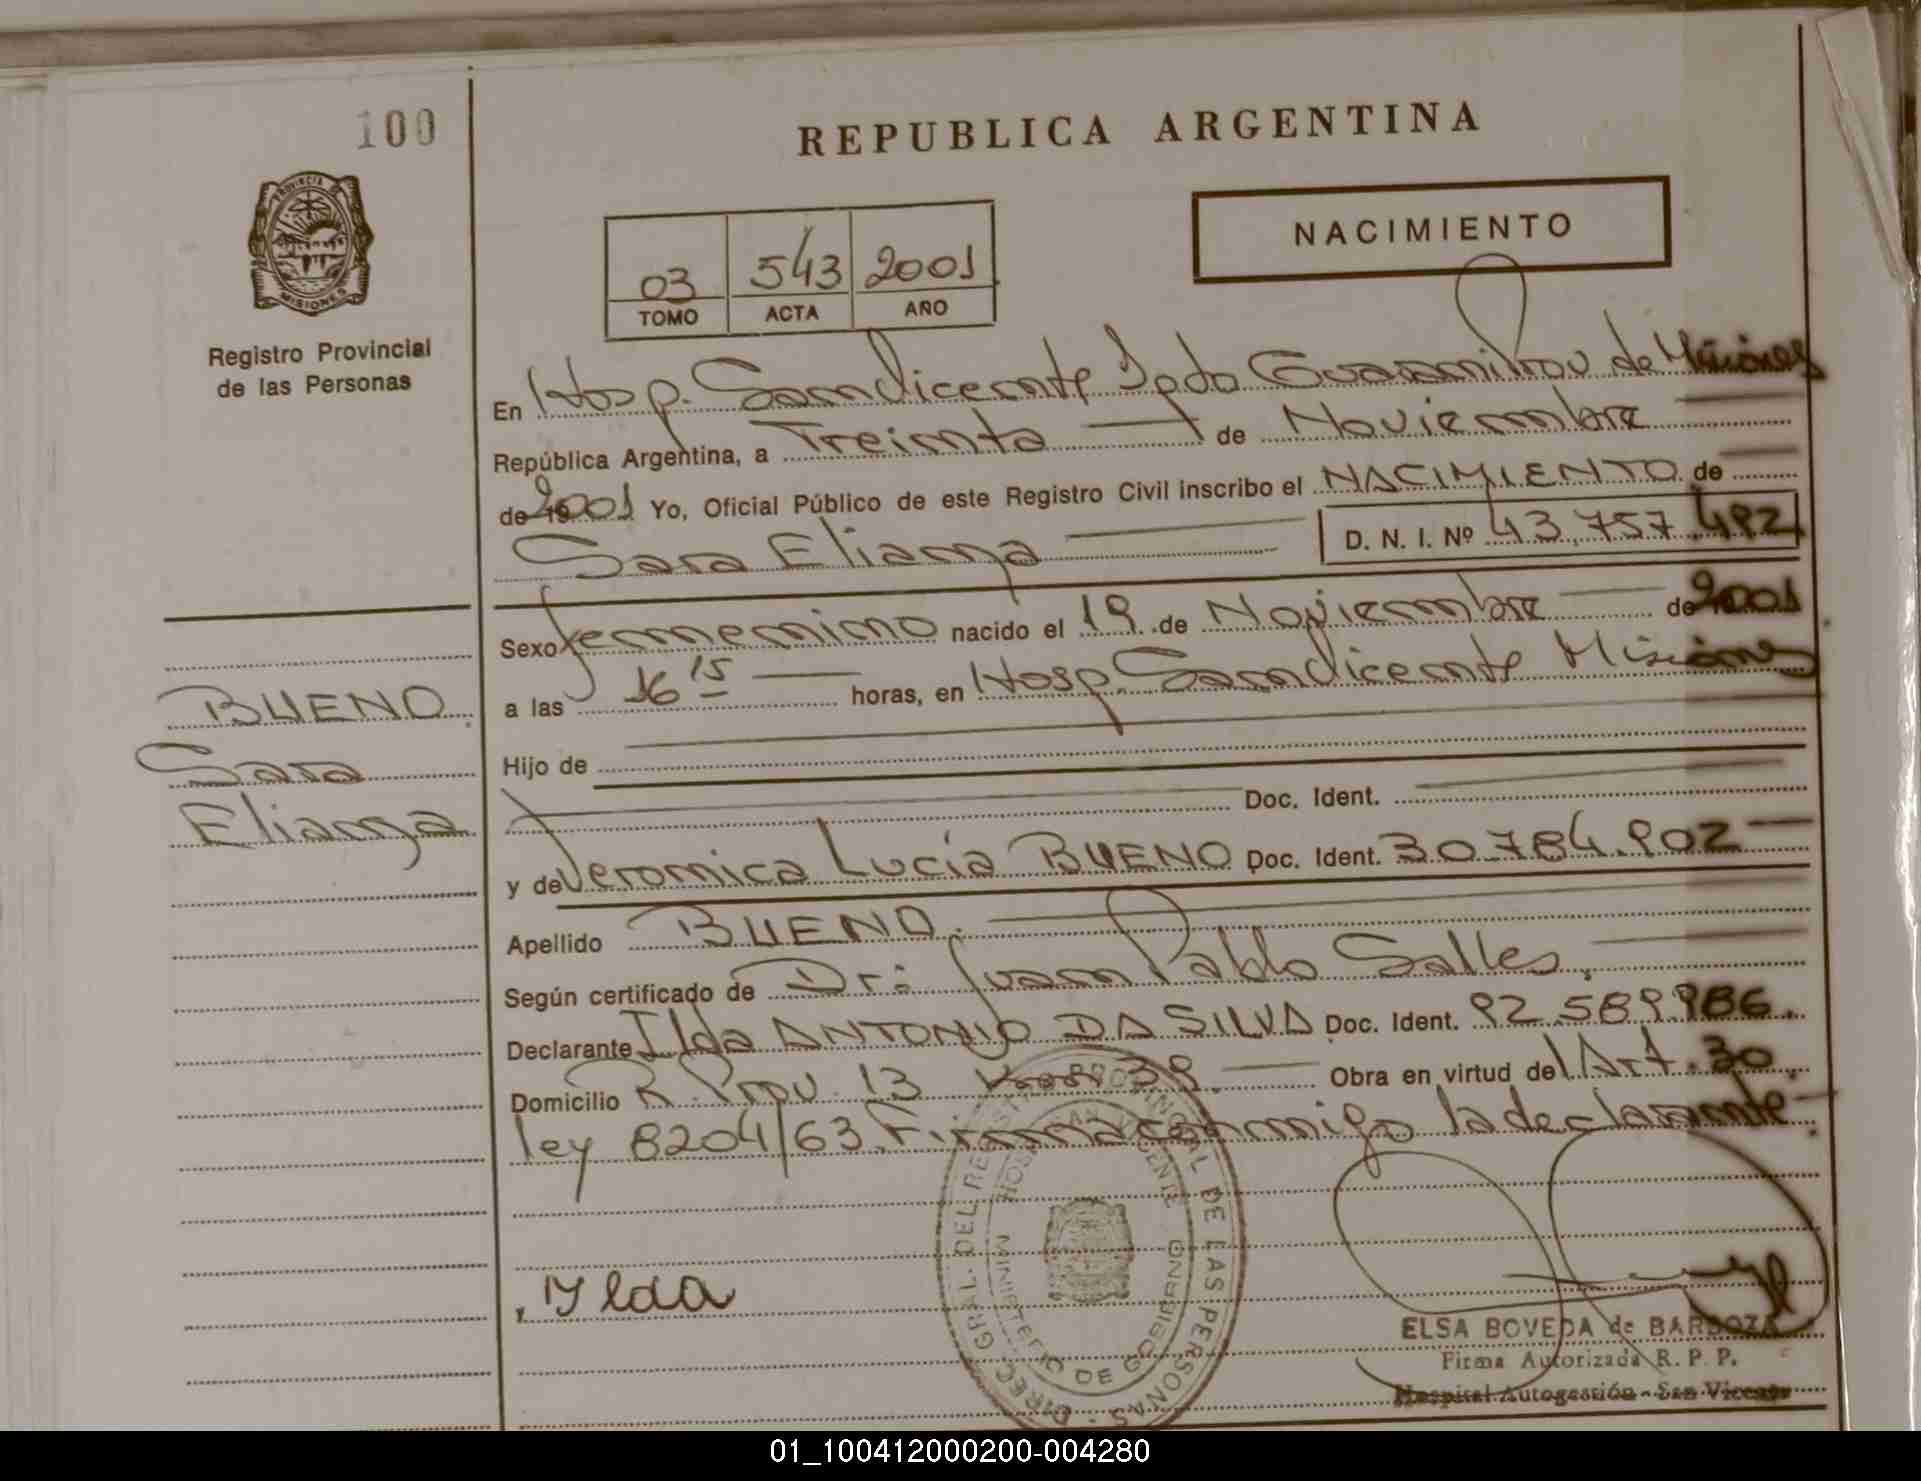 100
REPUBLICA ARGENTINA
NACIMIENTO
PROVINCIA DE
MISIONES
Registro Provincial
de las Personas
03 543 2001
TOMO ACTA AÑO
En Hosp. San Vicente Dpto Guaraní Prov de Misiones
República Argentina, a Treinta de Noviembre
de 19 2001 Yo, Oficial Público de este Registro Civil inscribo el NACIMIENTO de
Sara Eliana D. N. I. Nº 43.757.492
Sexo femenino nacido el 19 de Noviembre de 2001
a las 16 15 horas, en Hosp. San Vicente Misiones
Hijo de
Doc. Ident.
y de Veronica Lucía BUENO Doc. Ident. 30.784.902
Apellido BUENO.
Según certificado de Dr: Juan Pablo Salles.
Declarante Ilda ANTONIO DA SILVA Doc. Ident. 92.589.986.
Domicilio R. Prov. 13 39. Obra en virtud del Art. 30
ley 8204/63. Firma conmigo la declarante.
BUENO
Sara
Eliana
Ylda
DIREC. GRAL. DEL REGISTRO PROVINCIAL DE LAS PERSONAS
HOSP. SAN VICENTE
MINISTERIO DE GOBIERNO
ELSA BOVEDA de BARBOZA
Firma Autorizada R. P. P.
Hospital Autogestión - San Vicente
01_100412000200-004280